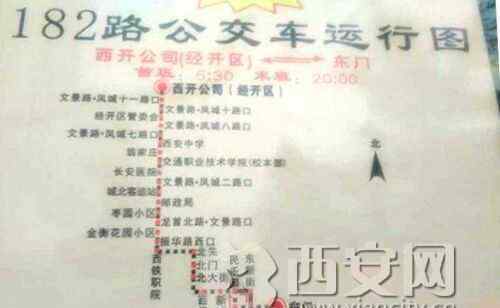 182路公交车运行图
西开公司(经开区) 东门
首班: 5:30 末班: 20:00
西开公司(经开区)
文景路·凤城十一路口
文景路·凤城十路口
经开区管委会
文景路·凤城八路口
文景路·凤城七路口
西安中学
翁家庄
交通职业技术学院(校本部)
长安医院
文景路·凤城二路口
城北客运站
邮政局
枣园小区
龙首北路·文景路口
金衡花园小区
振华路西口
北
西铁职院
北关
北门
北大街
西安网